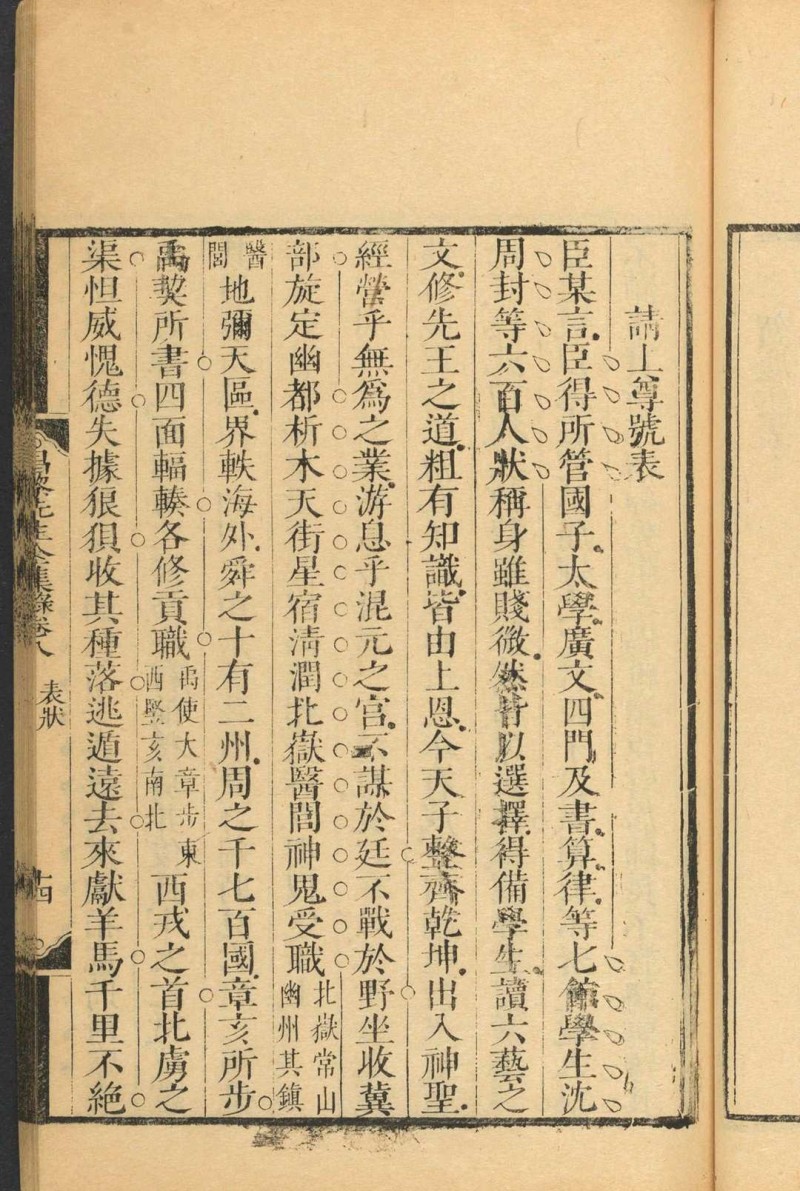 請上尊號表
臣某言臣得所管國子太學廣文四門及書算律等七館學生沈
周封等六百人狀稱身雖賤微然皆以選擇得備學生讀六藝之
文修先王之道粗有知識皆由上恩今天子整齊乾坤出入神聖
經營乎無爲之業游息乎混元之宫不謀於廷不戰於野坐收冀
部旋定幽都析木天街星宿淸潤北嶽醫閭神鬼受職北嶽常山幽州其鎮
醫閭地彌天區界軼海外舜之十有二州周之千七百國章亥所步
禹契所書四面輻輳各修貢職禹使大章步東西竪亥南北西戎之首北虜之
渠怛威愧德失據狼狽收其種落逃遁遠去來獻羊馬千里不絶
昌黎先生全集錄卷八 表狀 十四